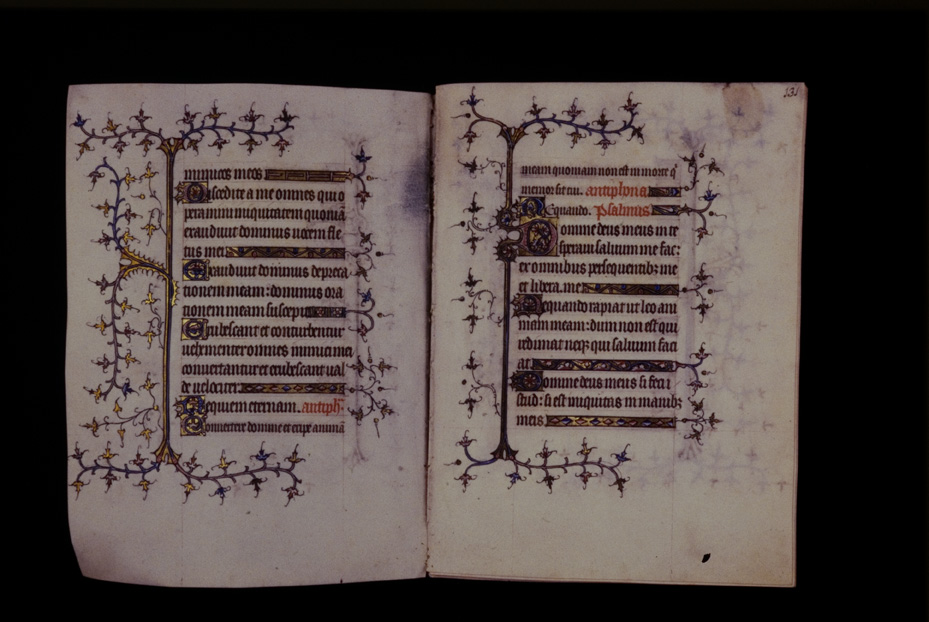 inimicos meos
Discedite a me omnes qui o
peramini iniquitatem quoniā
exaudiuit dominus uocem fle
tus mei
Exaudiuit dominus depreca
tionem meam: dominus ora
tionem meam suscepit
Erubescant et conturbentur
uehementer omnes inimici mei
conuertantur et erubescant ual
de uelociter
Requiem eternam. antiph.
Conuertere domine et eripe animā
131
meam quoniam non est in morte q
memor sit tui. antiphona
Nequando. psalmus
Domine deus meus in te
speraui saluum me fac:
ex omnibus persequentib; me
et libera me
Nequando rapiat ut leo ani
mam meam: dum non est qui
redimat neq; qui saluum faci
at
Domine deus meus si feci i
stud: si est iniquitas in manib;
meis